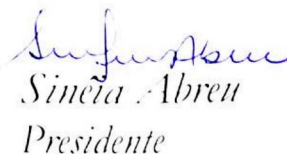 Sinéia Abreu
Presidente